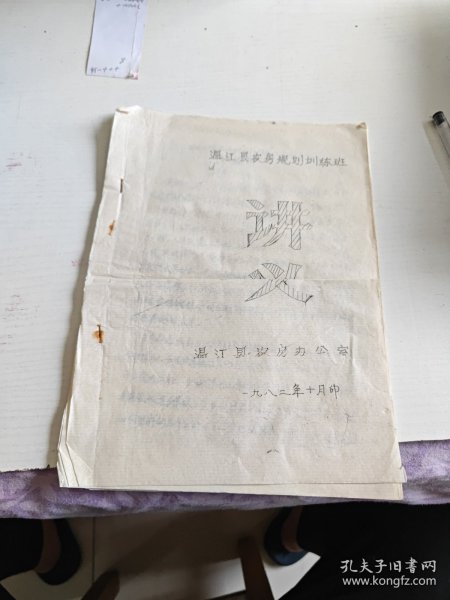 温江县农房规划训练班
讲
义
温江县农房办公室
一九八二年十月印
孔夫子旧书网
www.kongfz.com